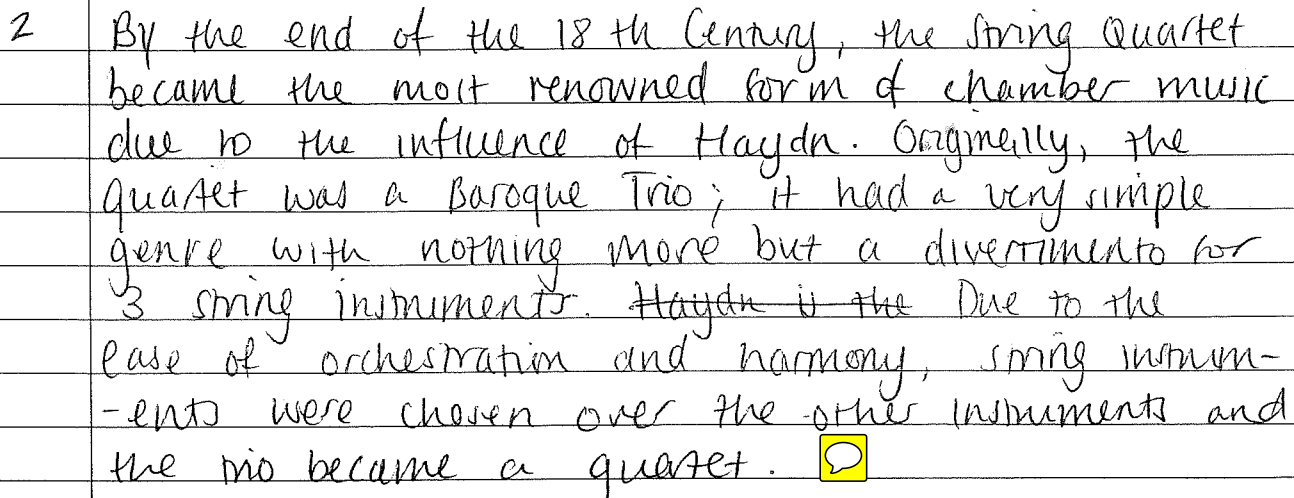 2 By the end of the 18 th Century, the String Quartet
became the most renowned form of chamber music
due to the influence of Haydn. Originally, the
quartet was a Baroque Trio; it had a very simple
genre with nothing more but a divertimento for
3 string instruments. Haydn is the Due to the
ease of orchestration and harmony, string instrum-
-ents were chosen over the other instruments and
the trio became a quartet.